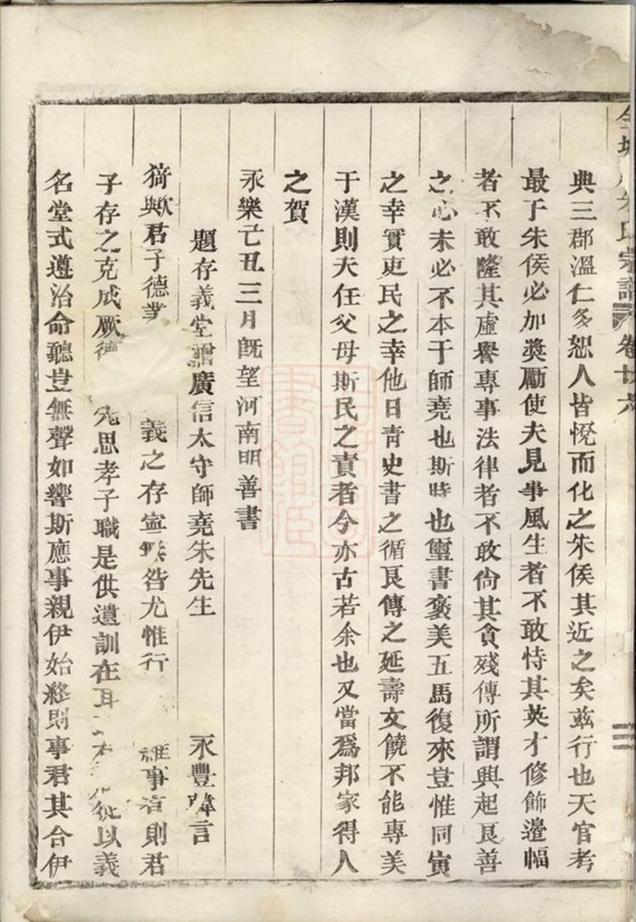 朱氏宗譜 卷廿六
典三郡溫仁多恕人皆悅而化之朱侯其近之矣茲行也天官考
最于朱侯必加奬勵使夫見事風生者不敢恃其英才修飾邊幅
者不敢隆其虛譽專事法律者不敢尙其貪殘傳所謂興起良善
之心未必不本于師堯也斯時也璽書褒美五馬復來豈惟同寅
之幸實吏民之幸他日靑史書之循良傳之延壽文饒不能專美
于漢則夫任父母斯民之責者今亦古若余也又當爲邦家得人
之賀
永樂己丑三月旣望河南明善書
題存義堂贈廣信太守師堯朱先生 永豐 言
猗歟君子德 義之存寧 咎尤惟行 事 則君
子存之克成厥德 先思孝子職是供遺訓在耳 從以義
名堂式遵治命聽豈無聲如響斯應事親伊始終則事君其合伊